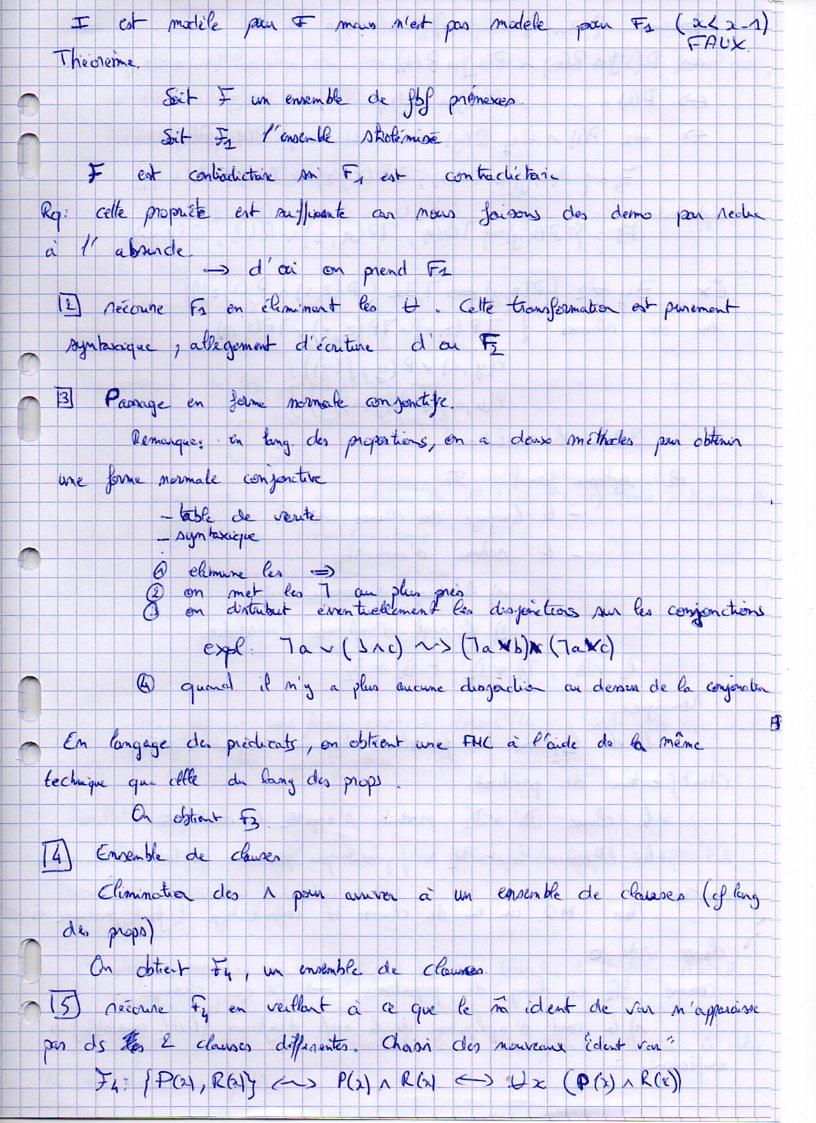 I est modèle pour F mais n'est pas modèle pour F1 (x < x-1)
FAUX.
Théorème.
Soit F un ensemble de fbf prénexes.
Soit F1 l'ensemble skolémisé
F est contradictoire ssi F1 est contradictoire
Rq: cette propriété est suffisante car nous faisons des démo par reduc
à l'absurde.
→ d'où on prend F1
[2] réécrire F1 en éliminant les ∀. Cette transformation est purement
syntaxique, allègement d'écriture d'où F2
[3] Passage en forme normale conjonctive.
Remarque: en lang. des propositions, on a deux méthodes pour obtenir
une forme normale conjonctive
- table de verité
- syntaxique
① élimine les ⇒
② on met les ¬ au plus près
③ on distribut éventuellement les disjonctions sur les conjonctions
expl: ¬a ∨ (b ∧ c) ⇝ (¬a ∨ b) ∧ (¬a ∨ c)
④ quand il n'y a plus aucune disjonction au dessus de la conjonction
En langage des prédicats, on obtient une FNC à l'aide de la même
technique que celle du lang des props.
On obtient F3.
[4] Ensemble de clauses
Elimination des ∧ pour arriver à un ensemble de clauses (cf lang
des props)
On obtient F4, un ensemble de clauses.
[5] réécrire F4 en veillant à ce que le m̂ ident de var n'apparaisse
pas ds 2 clauses differentes. Choisir des nouveaux "ident var"
F4: {P(x), R(x)} ↔ P(x) ∧ R(x) ↔ ∀x (P(x) ∧ R(x))